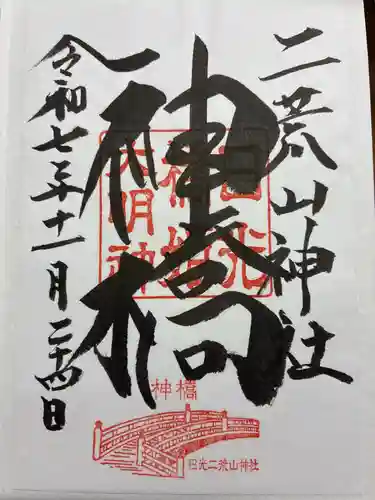 二荒山神社
神橋
令和七年十一月二十四日
日光
橋姫
大明神
神橋
日光二荒山神社